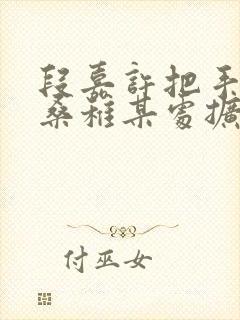 段嘉許把手
桑稚某處擴
付巫女